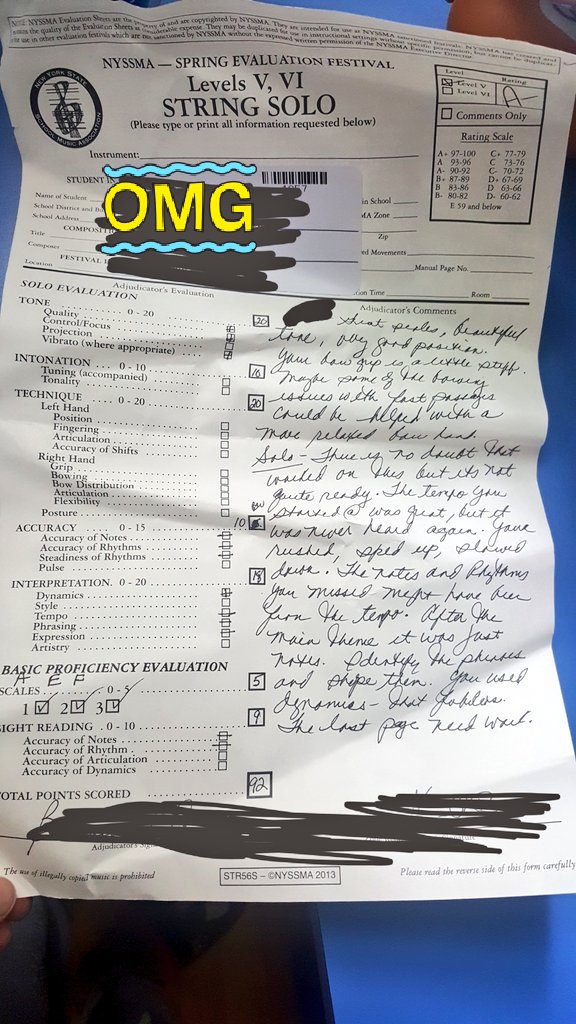 NOTE: NYSSMA Evaluation Sheets are the property of and are copyrighted by NYSSMA. They are intended for use at NYSSMA
NYSSMA — SPRING EVALUATION FESTIVAL
Levels V, VI
STRING SOLO
(Please type or print all information requested below)
NEW YORK STATE
SCHOOL MUSIC ASSOCIATION
Level
Rating
Level V
Level VI
A-
Comments Only
Rating Scale
A+ 97-100 C+ 77-79
A 93-96 C 73-76
A- 90-92 C- 70-72
B+ 87-89 D+ 67-69
B 83-86 D 63-66
B- 80-82 D- 60-62
E 59 and below
Instrument:
STUDENT IN
OMG
Name of Student
School District and
School Address
in School
MA Zone
Zip
COMPOSIT
Title
Composer
ed Movements
FESTIVAL
Location
Manual Page No.
ion Time
Room
Adjudicator's Evaluation
Adjudicator's Comments
SOLO EVALUATION
TONE 0 - 20
20
Quality
Control/Focus
Projection
Vibrato (where appropriate)
INTONATION 0 - 10
10
Tuning (accompanied)
Tonality
TECHNIQUE 0 - 20
20
Left Hand
Position
Fingering
Articulation
Accuracy of Shifts
Right Hand
Grip
Bowing
Bow Distribution
Articulation
Flexibility
Posture
ACCURACY 0 - 15
10
Accuracy of Notes
Accuracy of Rhythms
Steadiness of Rhythms
Pulse
INTERPRETATION 0 - 20
18
Dynamics
Style
Tempo
Phrasing
Expression
Artistry
BASIC PROFICIENCY EVALUATION
A E F
SCALES 0 - 5
5
1 2 3
SIGHT READING 0 - 10
9
Accuracy of Notes
Accuracy of Rhythm
Accuracy of Articulation
Accuracy of Dynamics
TOTAL POINTS SCORED
92
scales, Beautiful
tone, very good position.
Your bow grip is a little stiff.
Maybe some of the bowing
issues with fast passages
could be helped with a
more relaxed bow hand.
Solo - There is no doubt that
worked on this but its not
quite ready. The tempo you
started @ was great, but it
was never heard again. You
rushed, sped up, slowed
down. The notes and Rhythms
you missed might have been
from the tempo. After the
main theme it was just
notes. Identify the phrases
and shape them. You used
dynamics -
The last page need work.
The use of illegally copied music is prohibited
STR56S – ©NYSSMA 2013
Please read the reverse side of this form carefully